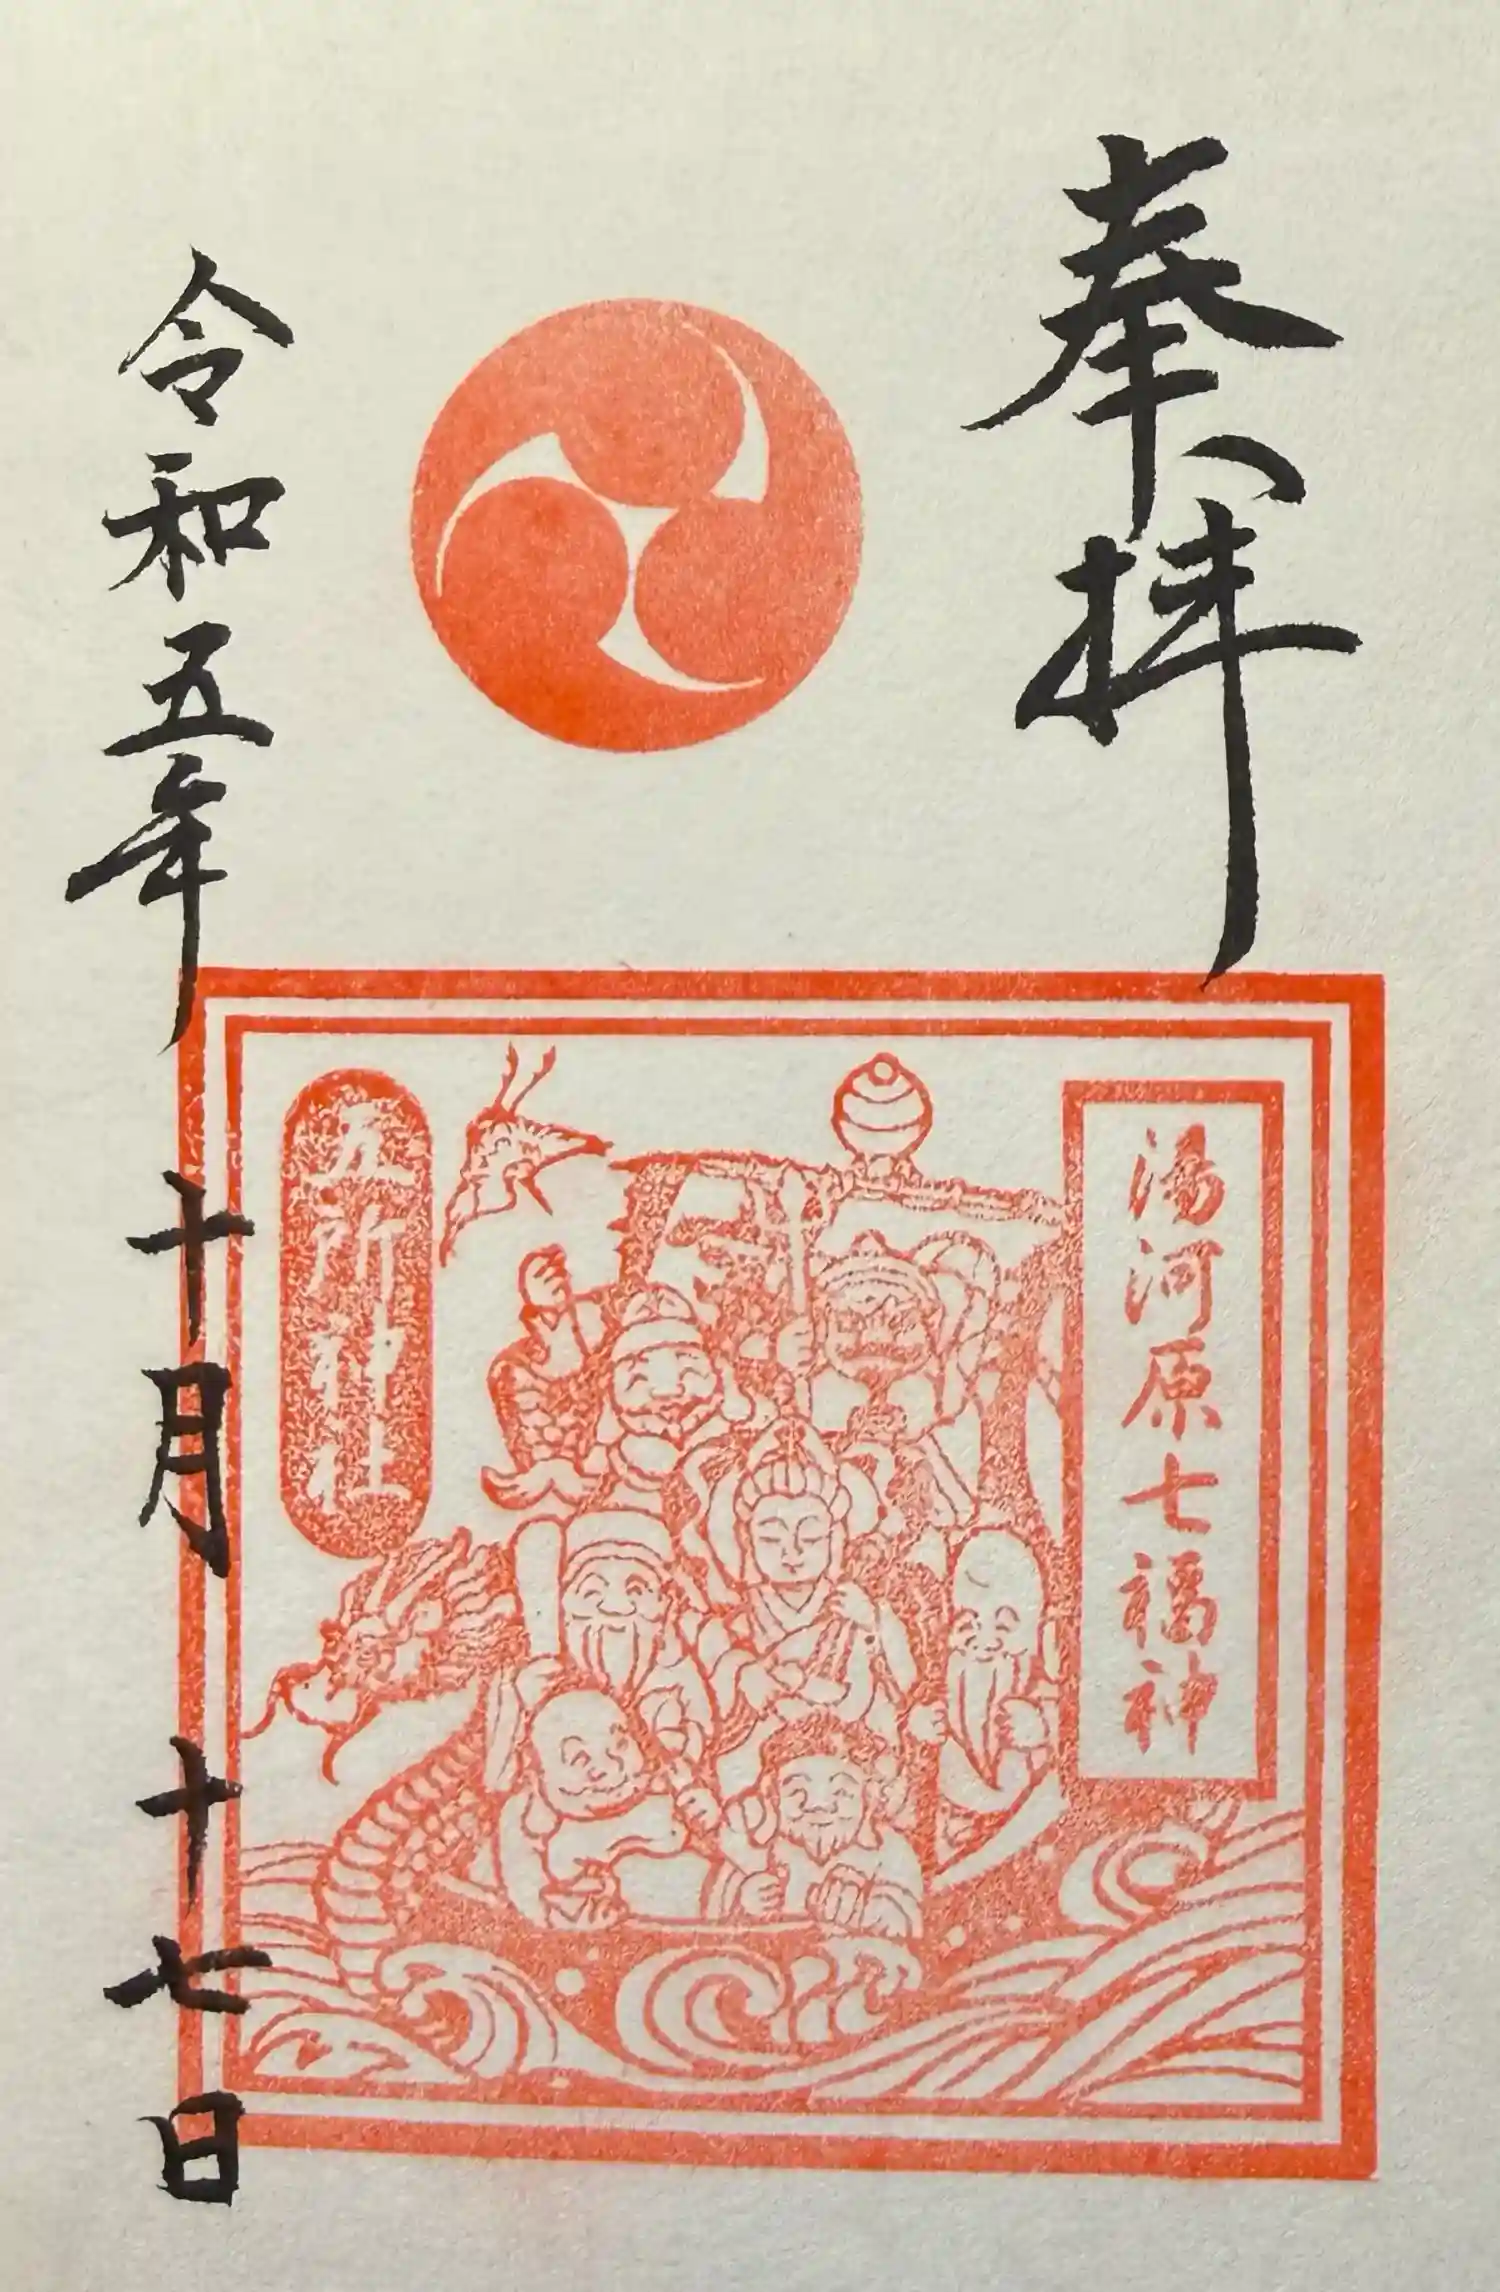 奉拝
湯河原七福神
五所神社
令和五年十月十七日